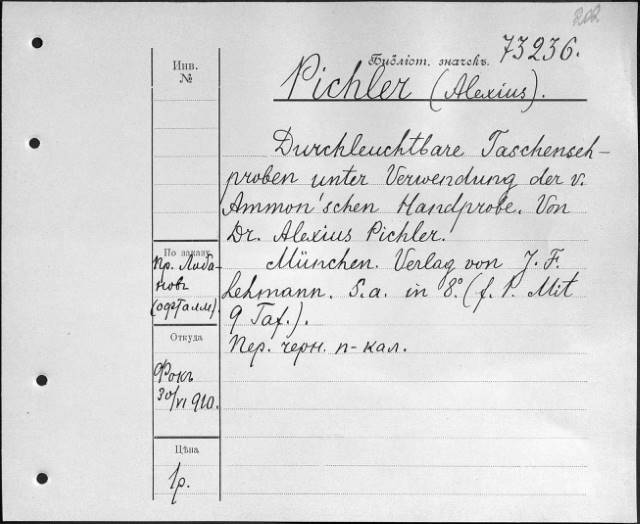 202
Библіот. значекъ. 73236.
Инв.
№
Pichler (Alexius).
Durchleuchtbare Taschenseh-
proben unter Verwendung der v.
Ammon'schen Handprobe. Von
Dr. Alexius Pichler.
München. Verlag von J. F.
Lehmann. S.a. in 8.° (f. P. Mit
9 Taf.).
Пер. черн. п-кал.
По заказу
Пр. Лоба-
новъ
(офталм).
Откуда
Фокъ
30/VI 910.
Цѣна
1р.